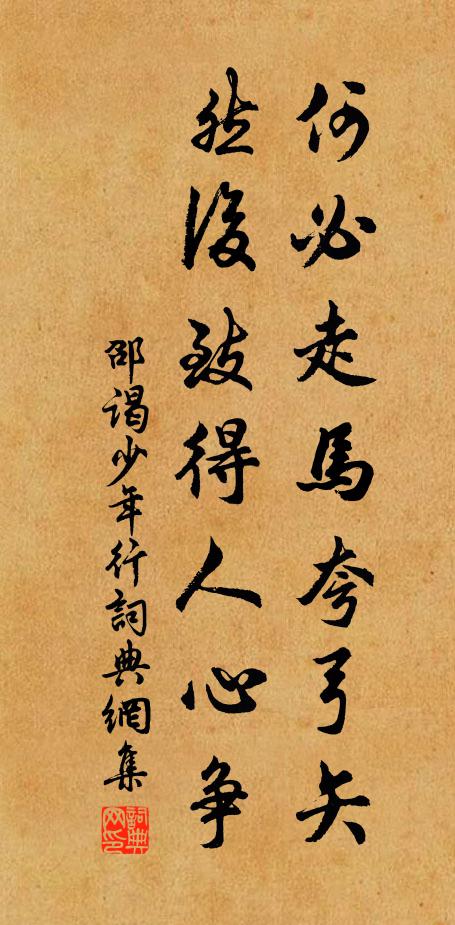 何必走馬夸弓矢
然後致得人心爭
邵谒少年行詞典網集
詞典网印